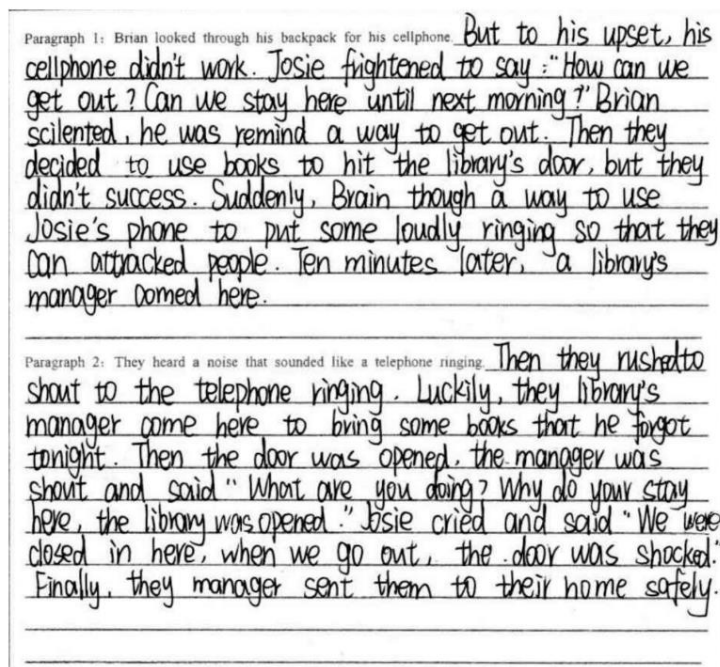 Paragraph 1: Brian looked through his backpack for his cellphone. But to his upset, his
cellphone didn't work. Josie frightened to say :"How can we
get out ? Can we stay here until next morning ?" Brian
scilented, he was remind a way to get out. Then they
decided to use books to hit the library's door, but they
didn't success. Suddenly, Brain though a way to use
Josie's phone to put some loudly ringing so that they
can attracked people. Ten minutes later, a library's
manager comed here.
Paragraph 2: They heard a noise that sounded like a telephone ringing. Then they rushed to
shout to the telephone ringing. Luckily, they library's
manager come here to bring some books that he forgot
tonight. Then the door was opened, the manager was
shout and said " What are you doing? Why do your stay
here, the library was opened." Josie cried and said "We were
closed in here, when we go out, the door was shocked."
Finally, they manager sent them to their home safely.